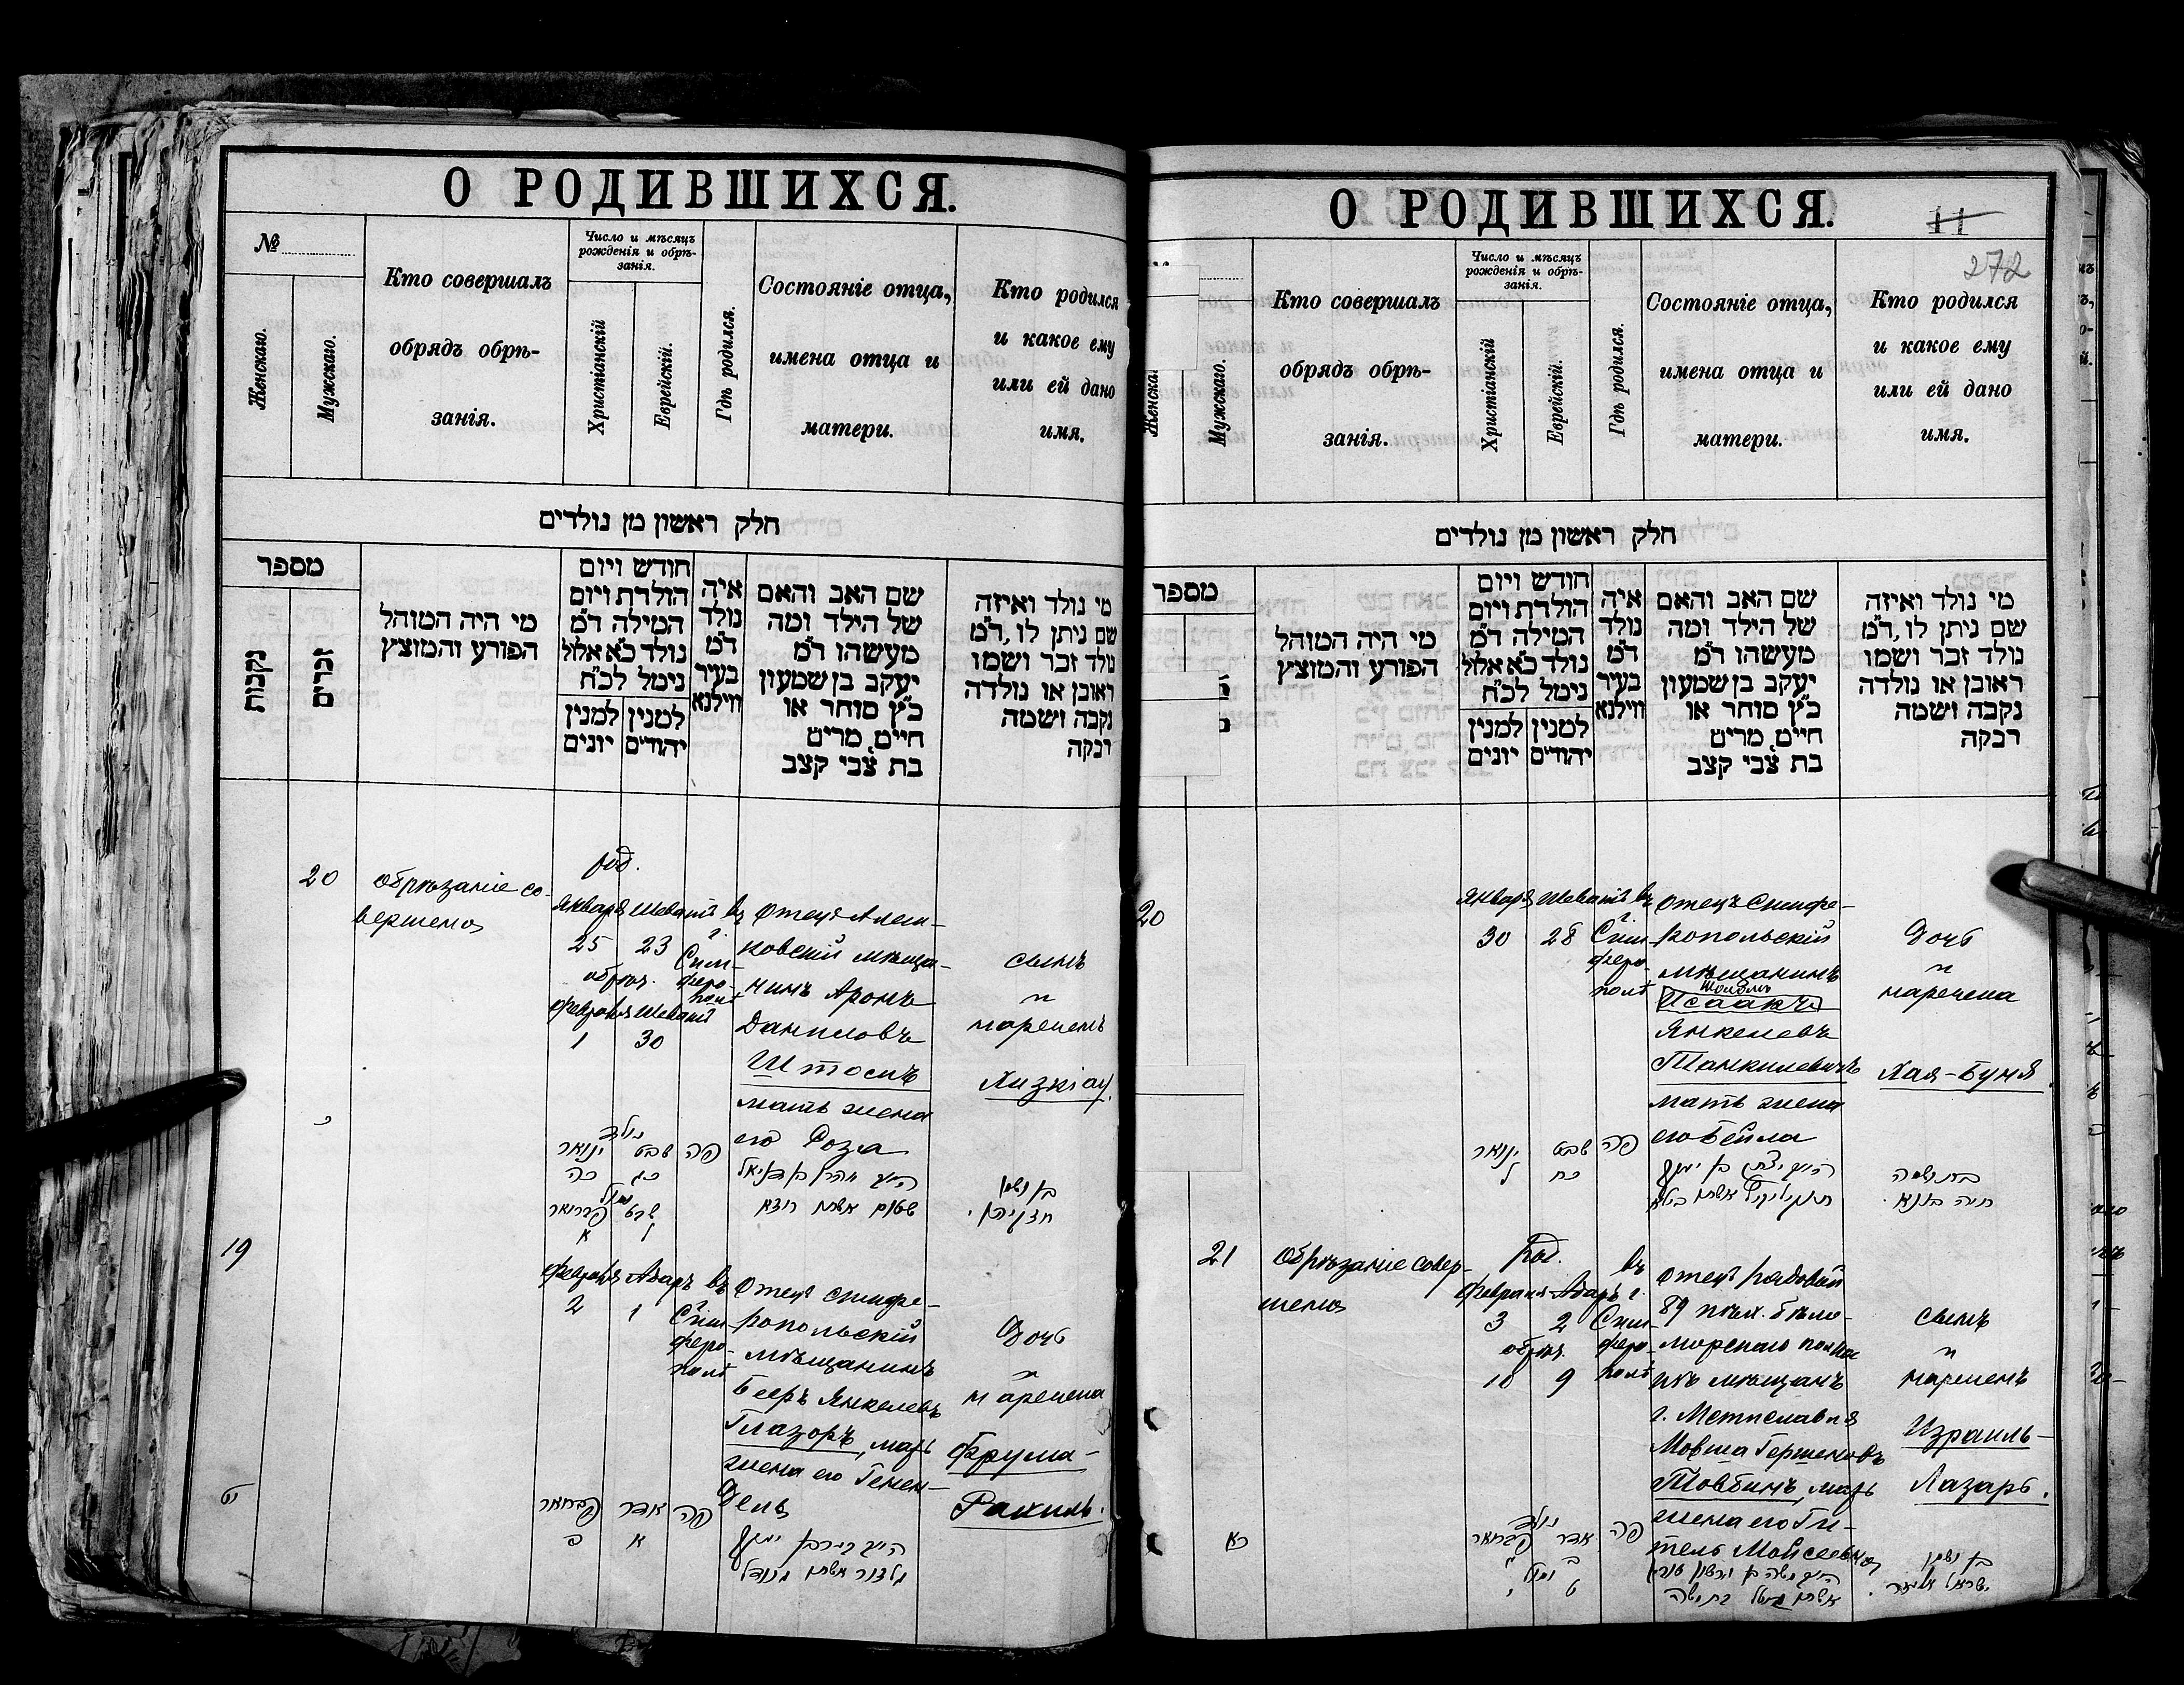 О РОДИВШИХСЯ.
№
Женскаго.
Мужскаго.
Кто совершалъ
обрядъ обрѣ-
занія.
Число и мѣсяцъ
рожденія и обрѣ-
занія.
Христіанскій
Еврейскій.
Гдѣ родился.
Состояніе отца,
имена отца и
матери.
Кто родился
и какое ему
или ей дано
имя.
חלק ראשון מן נולדים
מספר
נקבות
זכרים
מי היה המוהל
הפורע והמוצץ
חודש ויום
הולדת ויום
המילה ד״מ
נולד כ״א אלול
נימל לכ״ח
למנין
יונים
למנין
יהודים
איה
נולד
ד״מ
בעיר
ווילנא
שם האב והאם
של הילד ומה
מעשהו ד״מ
יעקב בן שמעון
כ״ץ סוחר או
חייט, מרים
בת צבי קצב
מי נולד ואיזה
שם ניתן לו, ד״מ
נולד זכר ושמו
ראובן או נולדה
נקבה ושמה
רבקה
20
обрѣзаніе со-
вершено
род.
Января
25
обрѣз.
Февраля
1
Шеватъ
23
Шеватъ
30
въ
г.
Сим-
феро-
полѣ
Отецъ Алеш-
ковскій мѣща-
нинъ Аронъ
Даниловъ
Штосъ
мать жена
его Роза
сынъ
и
нареченъ
Хизкіау.
נולד
ינואר
כה
שבט
כג
פה
נימול
שבט
ל
א
בן ושמו
19
Февраля
2
Адаръ
1
въ
г.
Сим-
феро-
полѣ
Отецъ Симфе-
ропольскій
мѣщанинъ
Беръ Янкелевъ
Глазоръ, мать
жена его Генен-
дель
Дочь
и
наречена
Фрума-
Рахиль.
פברואר
ב
אדר
א
פה
О РОДИВШИХСЯ.
11
272
Мужскаго.
Кто совершалъ
обрядъ обрѣ-
занія.
Число и мѣсяцъ
рожденія и обрѣ-
занія.
Христіанскій
Еврейскій.
Гдѣ родился.
Состояніе отца,
имена отца и
матери.
Кто родился
и какое ему
или ей дано
имя.
חלק ראשון מן נולדים
מספר
מי היה המוהל
הפורע והמוצץ
חודש ויום
הולדת ויום
המילה ד״מ
נולד כ״א אלול
נימל לכ״ח
למנין
יונים
למנין
יהודים
איה
נולד
ד״מ
בעיר
ווילנא
שם האב והאם
של הילד ומה
מעשהו ד״מ
יעקב בן שמעון
כ״ץ סוחר או
חייט, מרים
בת צבי קצב
מי נולד ואיזה
שם ניתן לו, ד״מ
נולד זכר ושמו
ראובן או נולדה
נקבה ושמה
רבקה
20
Января
30
Шеватъ
28
въ
г.
Сим-
феро-
полѣ
Отецъ Симфе-
ропольскій
мѣщанинъ
Исаакъ
Янкелевъ
Танкилевичъ
мать жена
его Бейла
Дочь
и
наречена
Хая-Буня.
ינואר
ל
שבט
כח
פה
בת ושמה
חיה בוניא
21
Обрѣзаніе совер-
шено
Род.
Февраля
3
обрѣз.
10
Адаръ
2
9
въ
г.
Сим-
феро-
полѣ
Отецъ рядовой
89 пѣх. Бѣло-
морскаго полка
изъ мѣщанъ
г. Мстиславля
Мовша Гершоновъ
Товбинъ, мать
жена его Ги-
тель Мойсеевна
сынъ
и
нареченъ
Израиль-
Лазарь.
כא
נולד
פברואר
ג
אדר
ב
פה
נימול
י
ט
בן ושמו
ישראל אליעזר